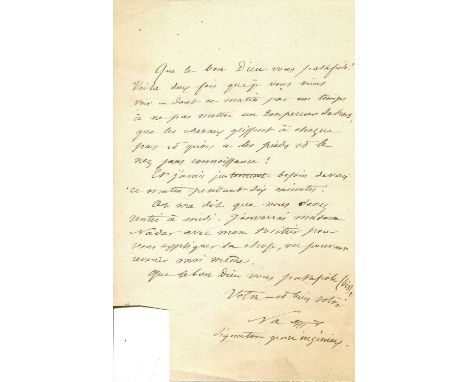 Que le bon Dieu vous patafiole!
Voilà deux fois que je vous viens
voir – dont ce matin par un temps
à ne pas mettre un Empereur dehors,
que les chevaux glissent à chaque
pas et qu'on a les pieds et le
nez sans connoissance!
Et j'avais justement besoin de vous
ce matin pendant dix minutes!
On me dit que vous serez
rentré à midi. J'enverrai madame
Nadar avec mon huissier pour
vous expliquer la chose, ne pouvant
revenir moi même.
Que le bon Dieu vous patafiole (bis)!
Votre – et bien votre!
Na
signature peu ingénieuse.